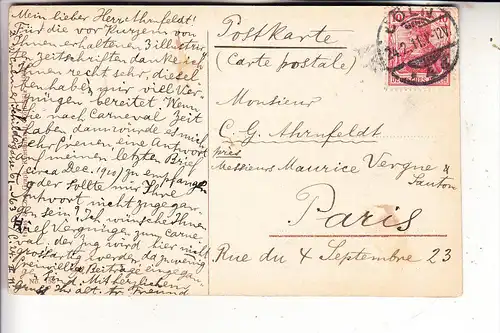 Mein lieber Herr Ahrnfeldt!
Für die vor Kurzem von
Ihnen erhaltenen 3 illustrir
ten zeitschriften danke ich
Ihnen recht sehr, diesel
ben haben mir viel Ver-
gnügen bereitet. Wenn
Sie nach Carneval Zeit
haben dann würde es mich
sehr freuen, eine Antwort
auf meinen letzten Brief
(circa Dec. 1910) zu empfangen
oder sollte mir Ihre
Antwort nicht zugegan-
gen sein? Ich wünsche Ihnen
viel Vergnügen zum Carne-
val. der Zug wird hier nicht
grossartig werden da zu wenig
freiwillige Beiträge eingegan-
gen sind. Mit herzlichem
Gruss Ihr alt. Freund
Postkarte
(Carte postale)
CÖLN
24.2.11
12N
Monsieur
C. G. Ahrnfeldt
près
Messieurs Maurice Vergne &
Santon
Paris
Rue du 4 Septembre 23